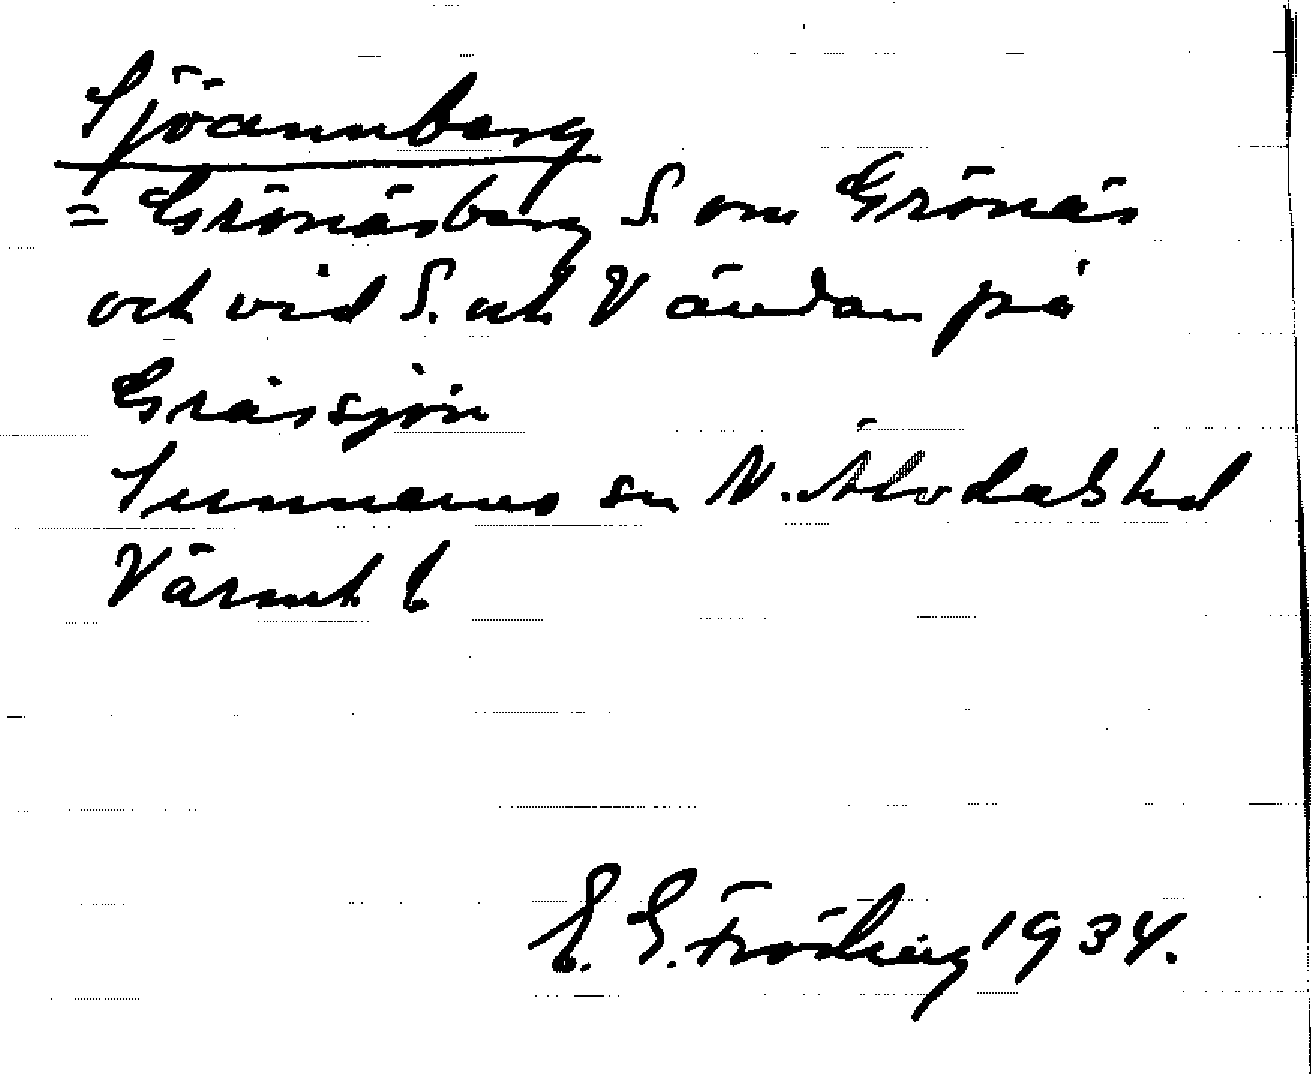 Sjöannberg
= Grönäsberg S. om Grönäs
och vid S. och V ändan på
Grässjön
Sunnemo sn N. Älvdals hd
Värml. l
E. G. Fröding 1934.